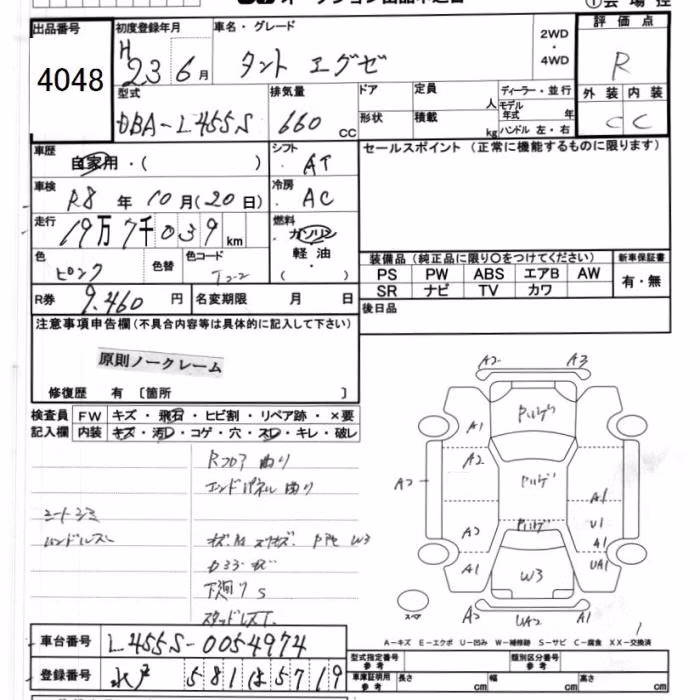 出品番号
4048
初度登録年月
H23 6月
車名・グレード
タント エグゼ
2WD
・
4WD
評価点
R
型式
DBA-L455S
排気量
660 cc
ドア
定員
人
形状
積載
kg
ディーラー・並行
モデル年式 年
ハンドル 左・右
外装 内装
C C
車歴
自家用・( )
シフト
AT
セールスポイント(正常に機能するものに限ります)
車検
R8 年 10 月(20 日)
冷房
AC
走行
19万7千039 km
燃料
ガソリン
軽油
( )
色
ピンク
色替
色コード
装備品(純正品に限り○をつけてください)
新車保証書
PS PW ABS エアB AW
SR ナビ TV カワ
有・無
R券
9.460 円
名変期限 月 日
後日品
注意事項申告欄(不具合内容等は具体的に記入して下さい)
原則ノークレーム
修復歴 有 〔箇所 〕
検査員 FW キズ・飛石・ヒビ割・リペア跡・×要
記入欄 内装 キズ・汚レ・コゲ・穴・スレ・キレ・破レ
Rフロア曲り
エンドパネル曲り
シートシミ
ハンドルスレ
W3
下廻りS
スタッドレスT
A2 A3
A1
A2
A2
A2
A1
A1
U1
A1
UA1
W3
A2 UA2 A1
スペア
A-キズ E-エクボ U-凹み W-補修跡 S-サビ C-腐食 XX-交換済
車台番号
L455S-0054974
登録番号
水戸 581 ほ 5719
型式指定番号
参考
類別区分番号
参考
車庫証明用
参考
長さ cm
幅 cm
高さ cm